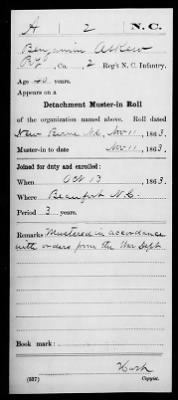 A 2 N.C.
Benjamin Askew
Pvt, Co. , 2 Reg't N. C. Infantry.
Age 40 years.
Appears on a
Detachment Muster-in Roll
of the organization named above. Roll dated
New Berne N.C., Nov 11, 1863.
Muster-in to date Nov 11, 1863.
Joined for duty and enrolled:
When Oct 13, 1863.
Where Beaufort N.C.
Period 3 years.
Remarks Mustered in accordance
with orders from the War Dept.
Book mark:
(337) Copyist.